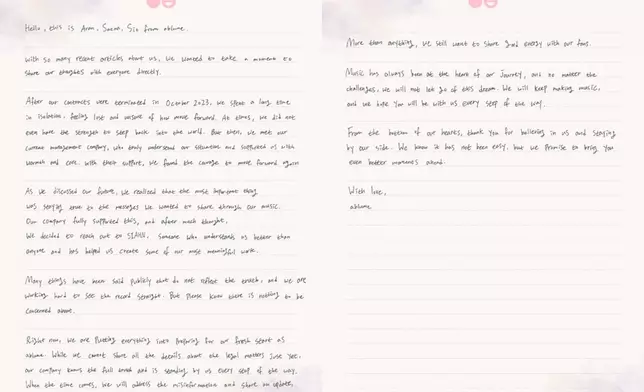 Hello, this is Aran, Saena, Sio from ablume.
With so many recent articles about us, we wanted to take a moment to
share our thoughts with everyone directly.
After our contracts were terminated in October 2023, we spent a long time
in isolation, feeling lost and unsure of how move forward. At times, we did not
even have the strength to step back into the world. But then, we met our
current management company, who truly understood our situation and supported us with
warmth and care. With their support, we found the courage to move forward again
As we discussed our future, we realized that the most important thing
was staying true to the messages we wanted to share through our music.
Our company fully supported this, and after much thought,
We decided to reach out to SIAHN, someone who understands us better than
anyone and has helped us create some of our most meaningful work.
Many things have been said publicly that do not reflect the truth, and we are
working hard to set the record straight. But please know there is nothing to be
concerned about.
Right now, we are putting everything into preparing for our fresh start as
ablume. While we cannot share all the details about the legal matters just yet,
our company knows the full truth and is standing by us every step of the way.
When the time comes, we will address the misinformation and share an update,
More than anything, we still want to share good energy with our fans.
Music has always been at the heart of our journey, and no matter the
challenges, we will not let go of this dream. We will keep making music,
and we hope you will be with us every step of the way.
From the bottom of our hearts, thank you for believing in us and staying
by our side. We know it has not been easy, but we promise to bring you
even better moments ahead.
With love,
ablume